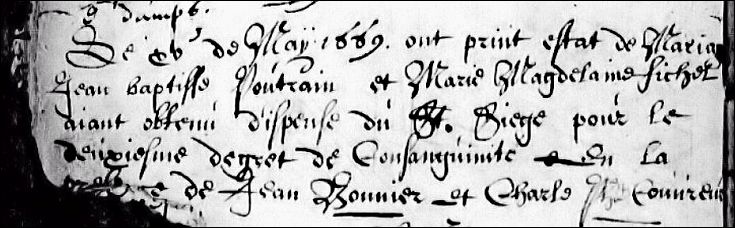 damps.
Le xv de May 1669. ont print estat de Maria
Jean baptiste Poutrain et Marie Magdelaine fichel
aiant obtenu dispense du St. Siege pour le
deuxiesme degret de Consanguinite et en la
de Jean Bonnier et Charle Couvreur